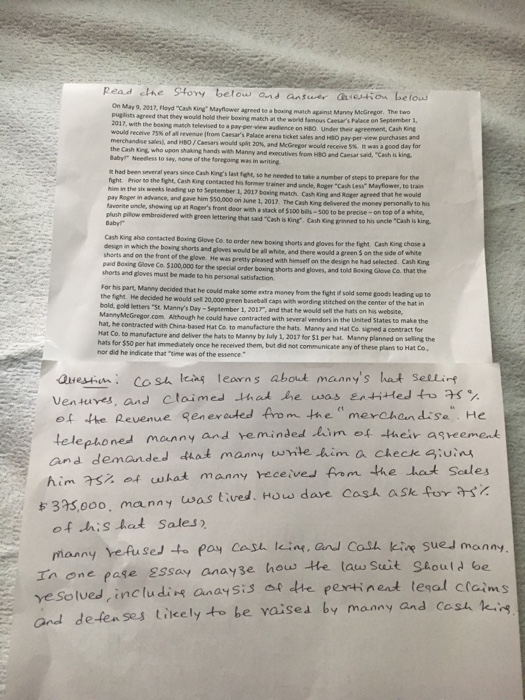 Read the Story below and answer Question below
On May 9, 2017, Floyd "Cash King" Mayflower agreed to a boxing match against Manny McGregor. The two
pugilists agreed that they would hold their boxing match at the world famous Caesar's Palace on September 1,
2017, with the boxing match televised to a pay-per-view audience on HBO. Under their agreement, Cash King
would receive 75% of all revenue (from Caesar's Palace arena ticket sales and HBO pay-per-view purchases and
merchandise sales), and HBO / Caesars would split 20%, and McGregor would receive 5%. It was a good day for
the Cash King, who upon shaking hands with Manny and executives from HBO and Caesar said, "Cash is king,
Baby!" Needless to say, none of the foregoing was in writing.
It had been several years since Cash King's last fight, so he needed to take a number of steps to prepare for the
fight. Prior to the fight, Cash King contacted his former trainer and uncle, Roger "Cash Less" Mayflower, to train
him in the six weeks leading up to September 1, 2017 boxing match. Cash King and Roger agreed that he would
pay Roger in advance, and gave him $50,000 on June 1, 2017. The Cash King delivered the money personally to his
favorite uncle, showing up at Roger's front door with a stack of $100 bills – 500 to be precise – on top of a white,
plush pillow embroidered with green lettering that said "Cash is King". Cash King grinned to his uncle "Cash is king,
Baby!"
Cash King also contacted Boxing Glove Co. to order new boxing shorts and gloves for the fight. Cash King chose a
design in which the boxing shorts and gloves would be all white, and there would a green $ on the side of white
shorts and on the front of the glove. He was pretty pleased with himself on the design he had selected. Cash King
paid Boxing Glove Co. $100,000 for the special order boxing shorts and gloves, and told Boxing Glove Co. that the
shorts and gloves must be made to his personal satisfaction.
For his part, Manny decided that he could make some extra money from the fight if sold some goods leading up to
the fight. He decided he would sell 20,000 green baseball caps with wording stitched on the center of the hat in
bold, gold letters "St. Manny's Day - September 1, 2017", and that he would sell the hats on his website,
MannyMcGregor.com. Although he could have contracted with several vendors in the United States to make the
hat, he contracted with China-based Hat Co. to manufacture the hats. Manny and Hat Co. signed a contract for
Hat Co. to manufacture and deliver the hats to Manny by July 1, 2017 for $1 per hat. Manny planned on selling the
hats for $50 per hat immediately once he received them, but did not communicate any of these plans to Hat Co.,
nor did he indicate that "time was of the essence."
Question: Cash king learns about manny's hat selling
Ventures, and claimed that he was entitled to 75%
of the Revenue generated from the "merchandise". He
telephoned manny and reminded him of their agreement
and demanded that manny write him a check giving
him 75% of what manny received from the hat sales
$375,000. manny was lived. How dare Cash ask for 75%
of his hat sales?
manny refused to pay cash king, and cash king sued manny.
In one page Essay anayze how the law suit should be
resolved, including anaysis of the pertinent legal claims
and defenses likely to be raised by manny and cash king.